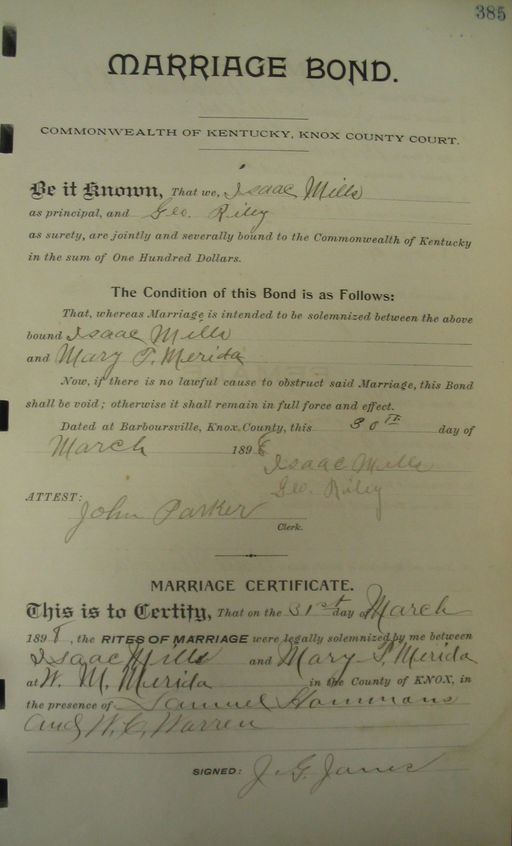 385
MARRIAGE BOND.
COMMONWEALTH OF KENTUCKY, KNOX COUNTY COURT.
Be it Known, That we, Isaac Mills
as principal, and Geo. Riley
as surety, are jointly and severally bound to the Commonwealth of Kentucky
in the sum of One Hundred Dollars.
The Condition of this Bond is as Follows:
That, whereas Marriage is intended to be solemnized between the above
bound Isaac Mills
and Mary T. Merida
Now, if there is no lawful cause to obstruct said Marriage, this Bond
shall be void; otherwise it shall remain in full force and effect.
Dated at Barboursville, Knox County, this 30th day of
March 1898
Isaac Mills
Geo. Riley
ATTEST:
John Parker
Clerk.
MARRIAGE CERTIFICATE.
This is to Certify, That on the 31st day of March
1898, the RITES OF MARRIAGE were legally solemnized by me between
Isaac Mills and Mary T. Merida
at W. M. Merida in the County of KNOX, in
the presence of Samuel Hammons
and W. C. Warren
SIGNED: J. G.